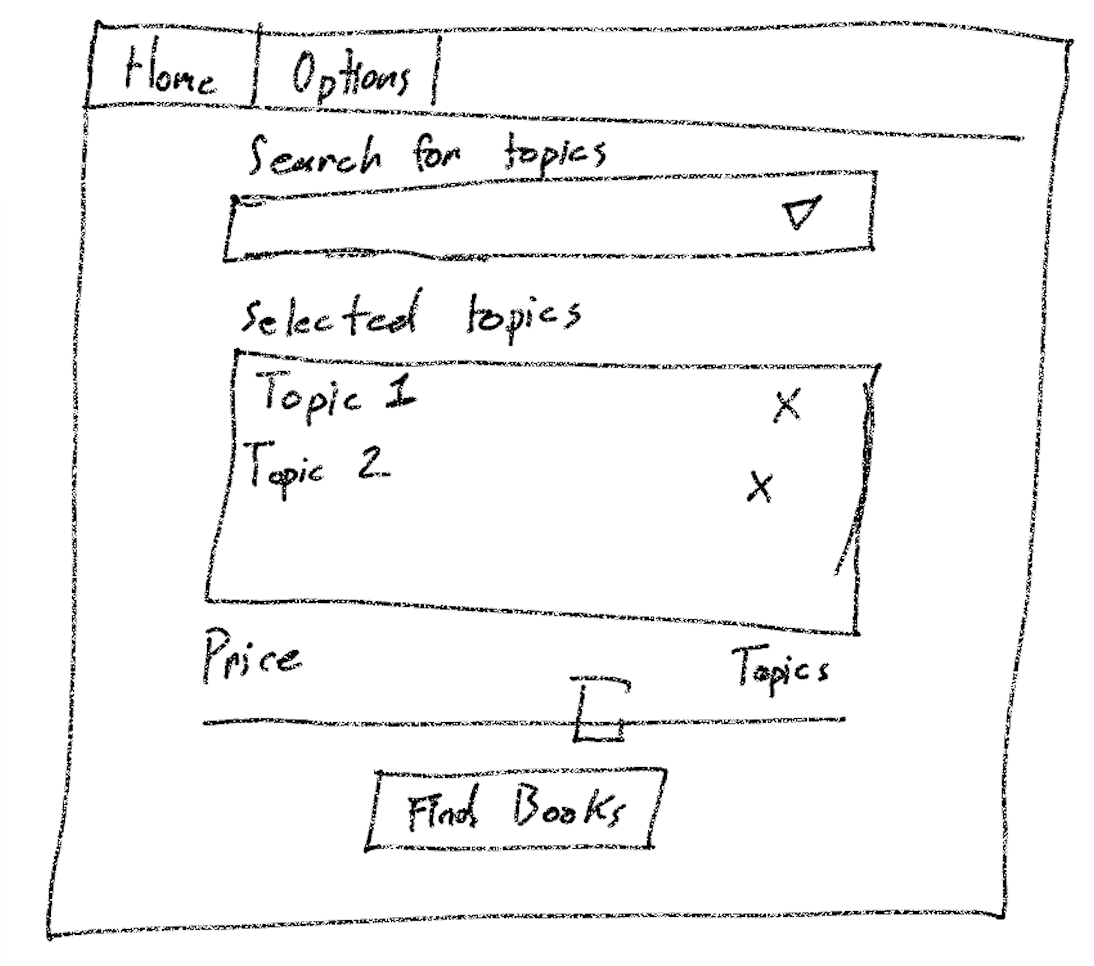 Home Options
Search for topics
Selected topics
Topic 1 X
Topic 2 X
Price Topics
Find Books